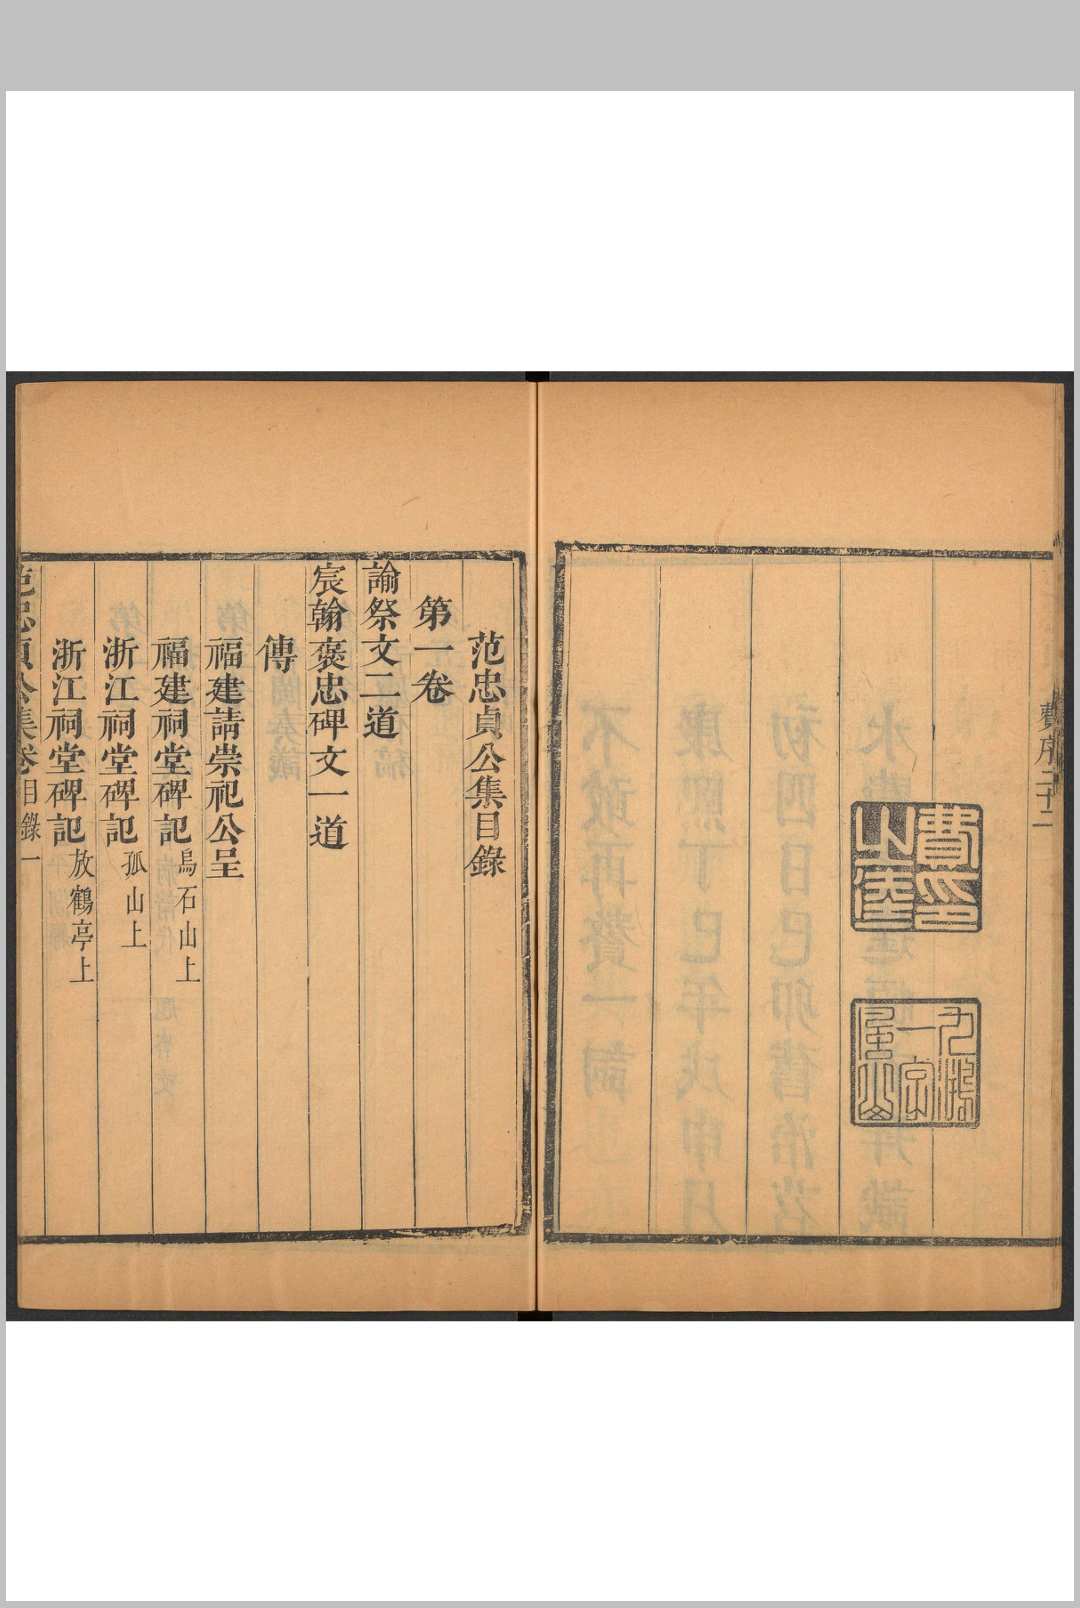 費序
費印
之逵
范忠貞公集目錄
第一卷
諭祭文二道
宸翰褒忠碑文一道
傳
福建請崇祀公呈
福建祠堂碑記 烏石山上
浙江祠堂碑記 孤山上
浙江祠堂碑記 放鶴亭上
范忠貞公集卷 目錄 一